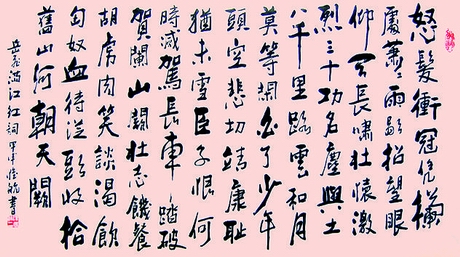 怒髮衝冠凭欄
處蕭〻雨歇抬望眼
仰天長嘯壯懷激
烈三十功名塵與土
八千里路雲和月
莫等閒白了少年
頭空悲切靖康恥
猶未雪臣子恨何
時滅駕長車踏破
賀闌山闕壯志饑餐
胡虜肉笑談渴飲
匈奴血待從頭收拾
舊山河朝天闕
岳飛滿江紅詞甲申書